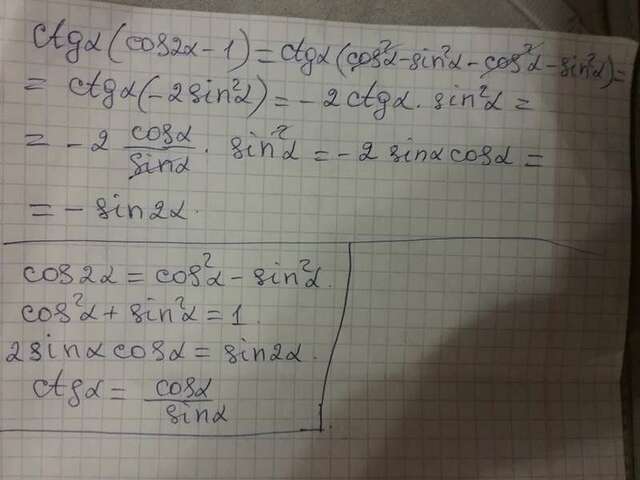 ctgα(cos2α-1)=ctgα(cos²α-sin²α-cos²α-sin²α)=
= ctgα(-2sin²α)=-2ctgα·sin²α=
= -2 cosα/sinα · sin²α=-2 sinαcosα=
= - sin2α.
cos2α=cos²α-sin²α.
cos²α+sin²α=1.
2sinαcosα=sin2α.
ctgα= cosα/sinα